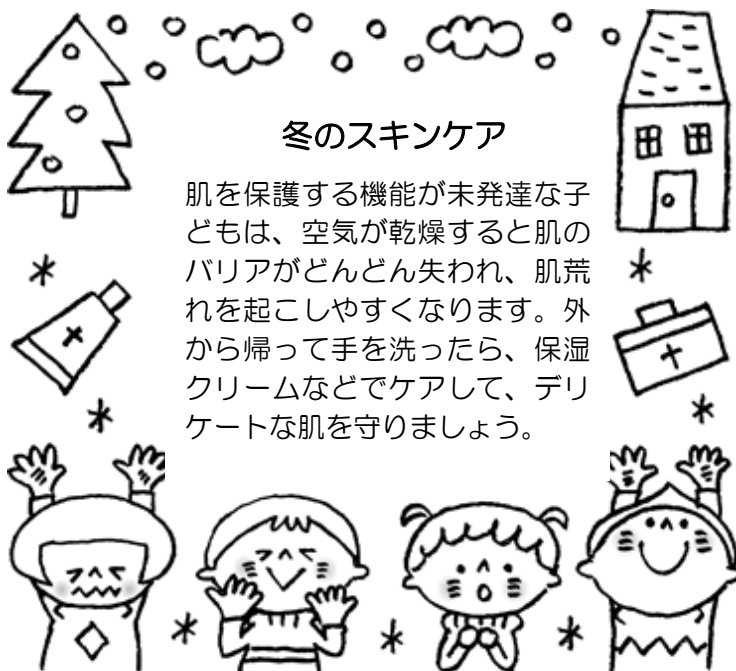 冬のスキンケア
肌を保護する機能が未発達な子
どもは、空気が乾燥すると肌の
バリアがどんどん失われ、肌荒
れを起こしやすくなります。外
から帰って手を洗ったら、保湿
クリームなどでケアして、デリ
ケートな肌を守りましょう。